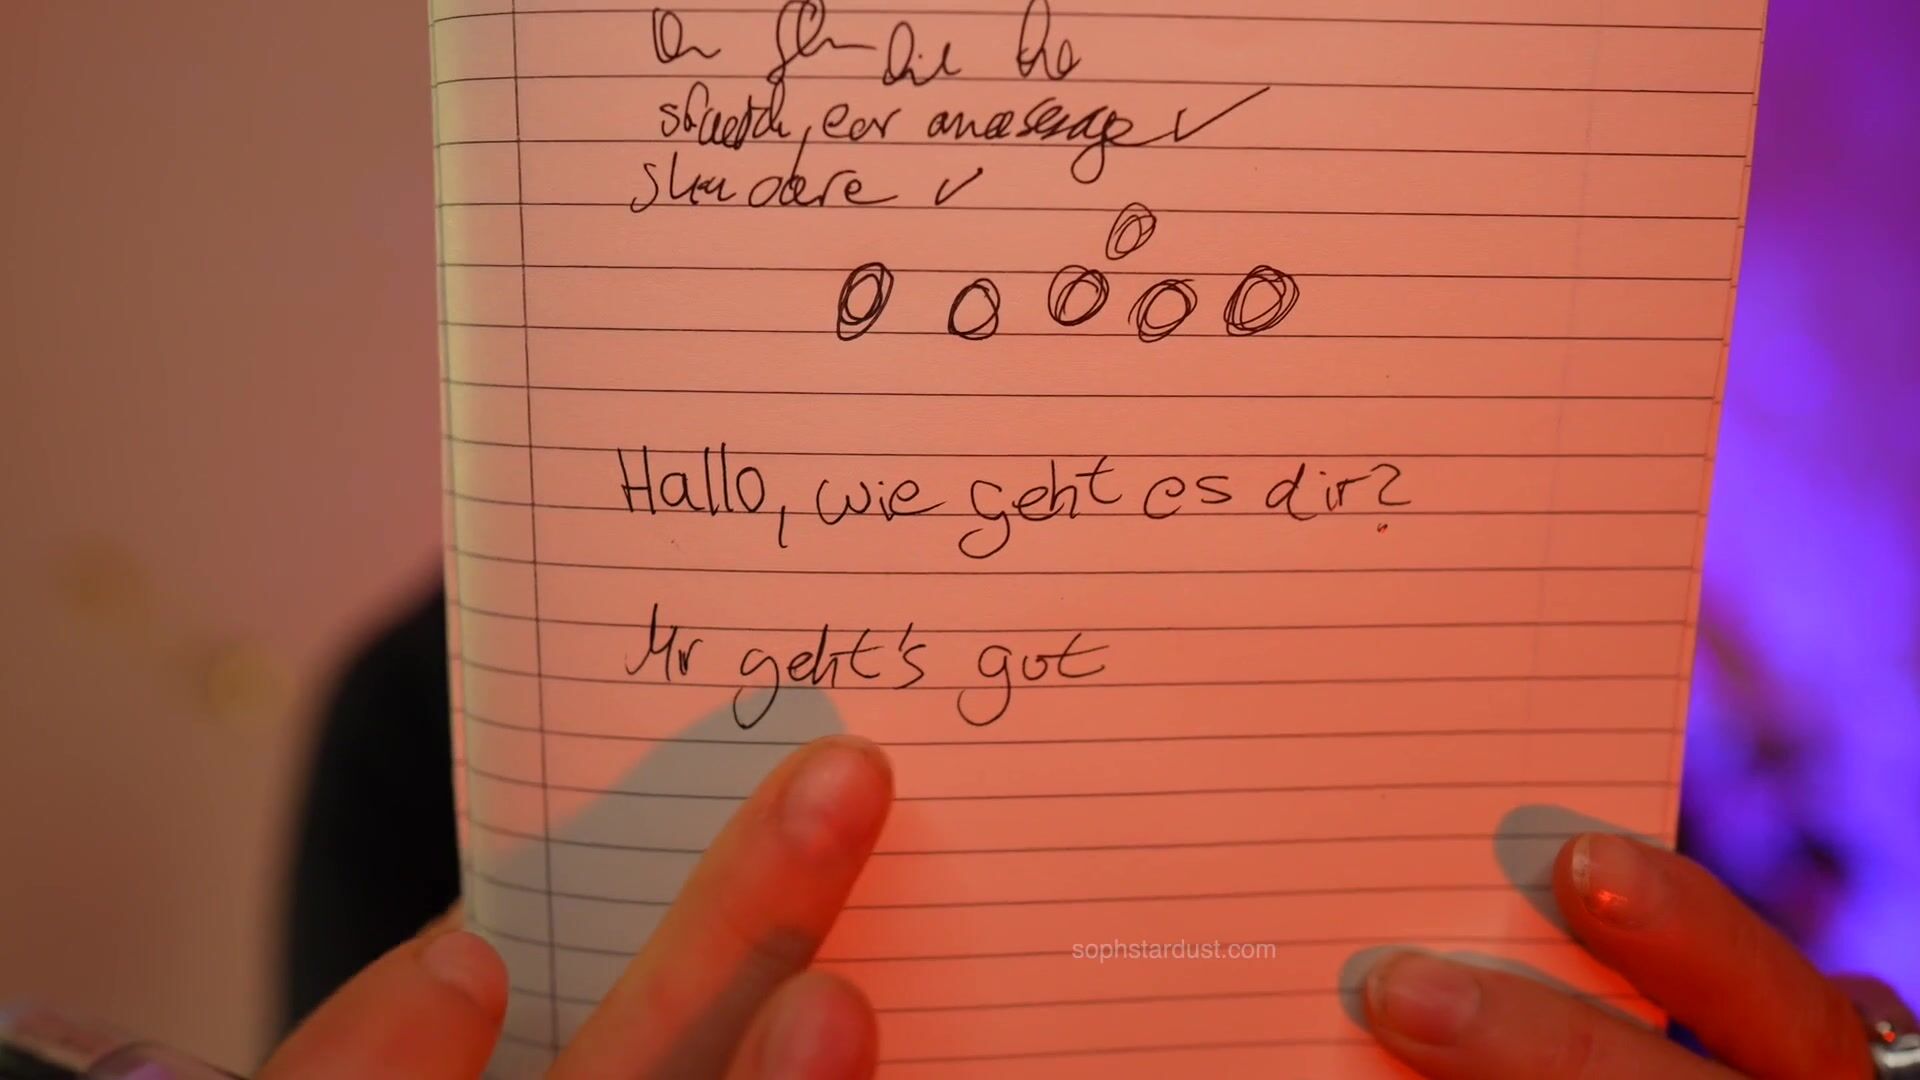 stretch, ear massage ✓
skin care ✓
Hallo, wie geht es dir?
Mir geht's gut
sophstardust.com